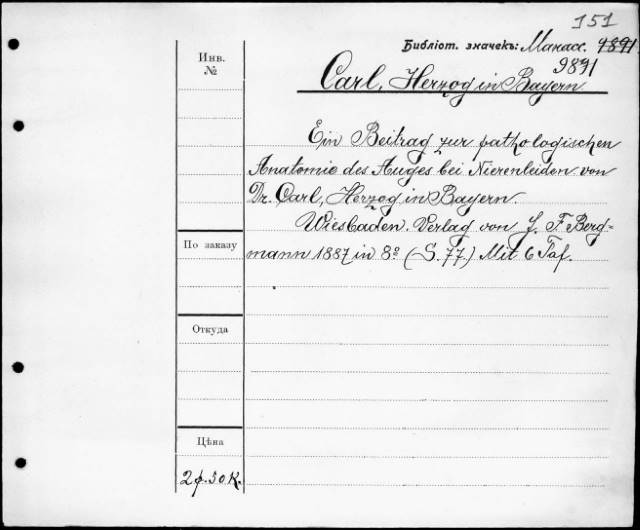 151
Библіот. значекъ: Манасс. 9891
9891
Инв.
№
Carl, Herzog in Bayern
Ein Beitrag zur pathologischen
Anatomie des Auges bei Nierenleiden von
Dr. Carl, Herzog in Bayern.
Wiesbaden. Verlag von J. F. Berg-
По заказу
mann 1887 in 8º (S. 77.) Mit 6 Taf.
Откуда
Цѣна
2 р. 50 к.